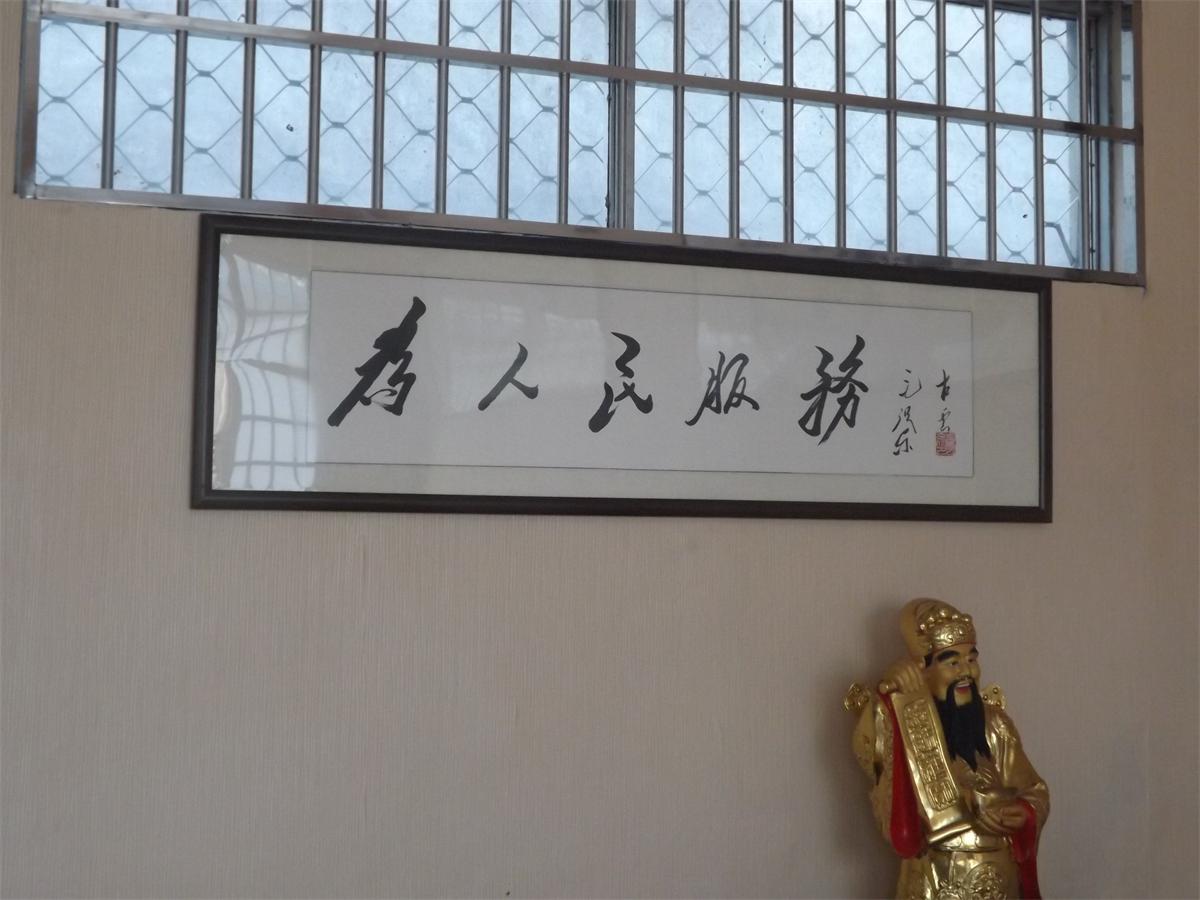 為人民服務
毛澤东
古雲